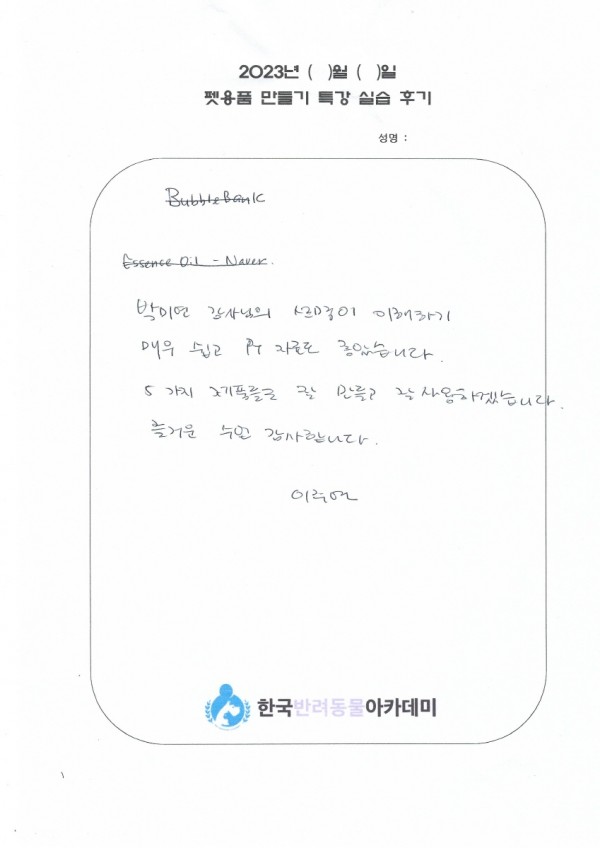 2023년 (  )월 (  )일
펫용품 만들기 특강 실습 후기
성명 :
BubbleBank
Essence Oil - Naver.
박미연 강사님의 설명이 이해하기
매우 쉽고 PT 자료도 좋았습니다.
5가지 제품들을 잘 만들고 잘 사용하겠습니다.
즐거운 수업 감사합니다.
한국반려동물아카데미